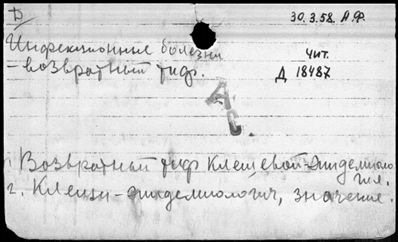 Б
30.3.58. А.Ф.
Инфекционные болезни
- возвратный тиф.
чит.
Д 18487
Возвратный тиф клещевой-эпидемиология.
г. Клещи-эпидемиология, значение.